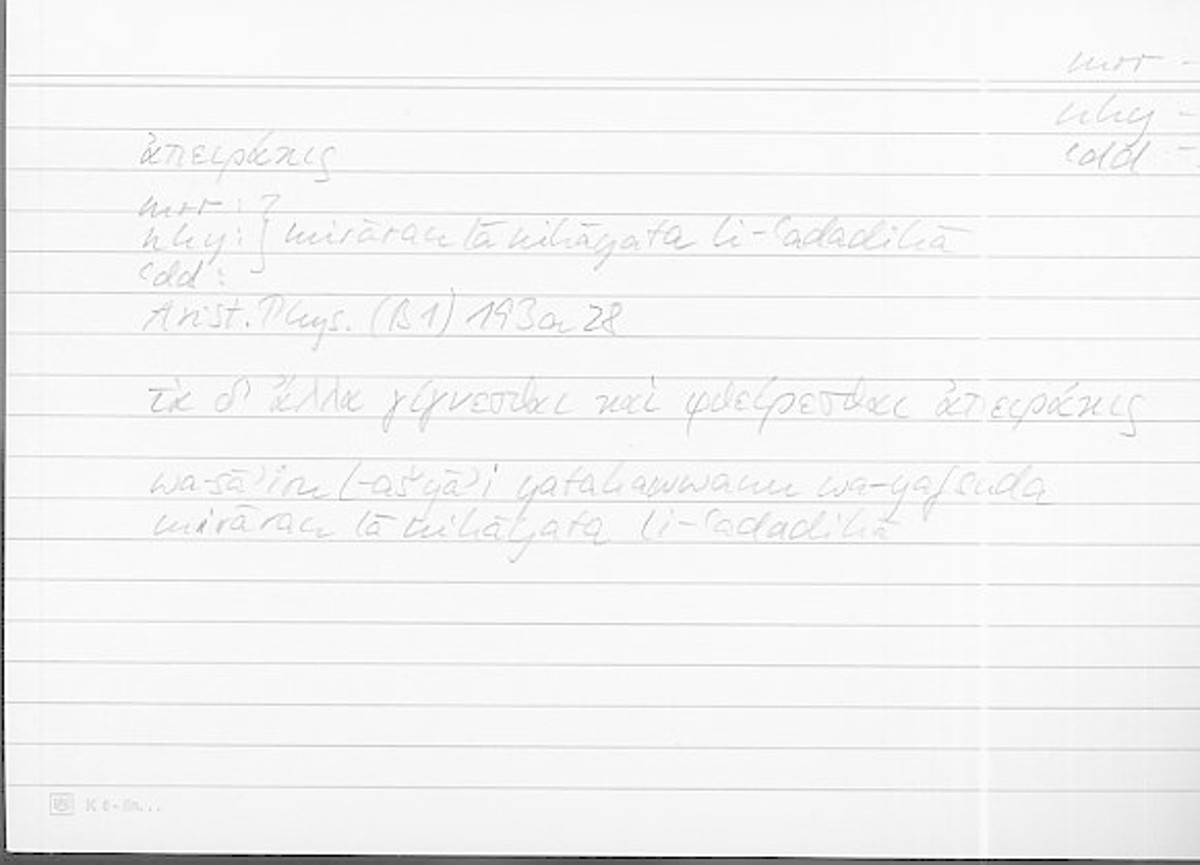 mrr -
nhy -
ʿdd -
ἀπειράκις
mrr :
nhy : } mirāran lā nihāyata li-ʿadadihā
ʿdd :
Arist. Phys. (B 1) 193a 28
τὰ δ' ἄλλα γίγνεσθαι καὶ φθείρεσθαι ἀπειράκις
wa-sāʾiru l-ašyāʾi yatakawwanu wa-yafsuda
mirāran lā nihāyata li-ʿadadihā